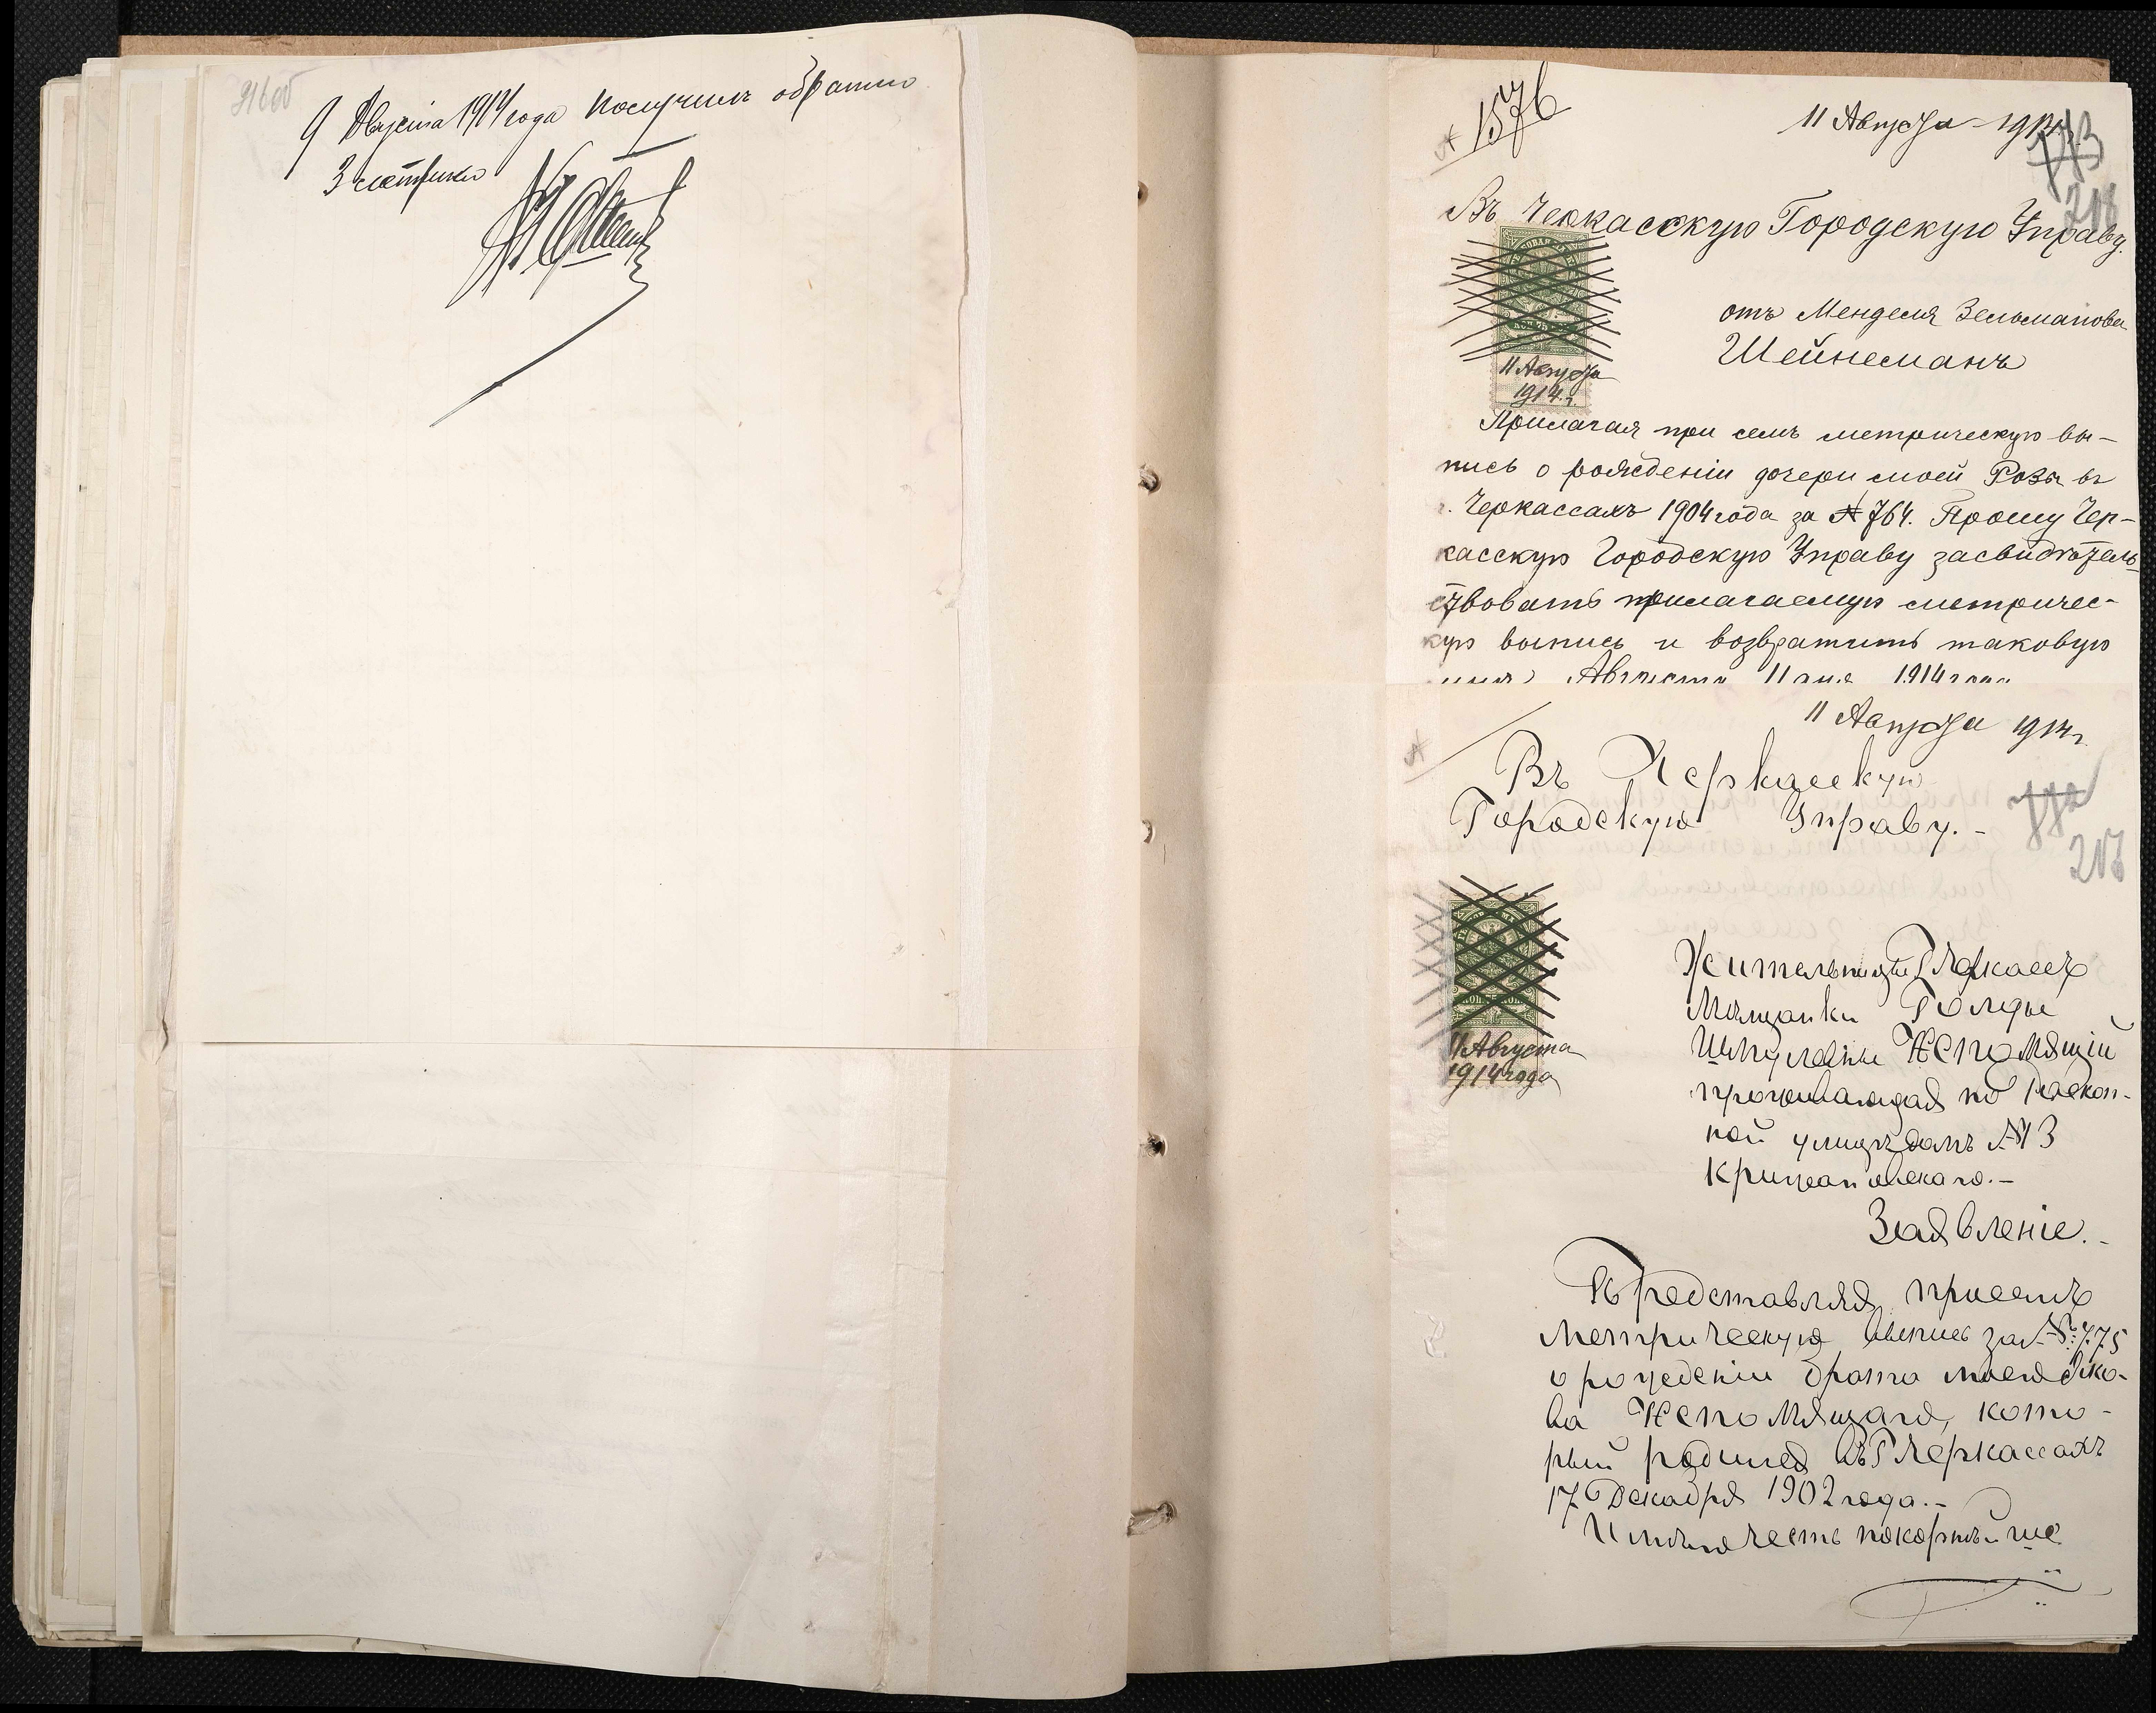 9 Августа 1914 года получилъ обратно
3 метрики
№ 1576
11 Августа 1914 г.
773
218
Въ Черкасскую Городскую Управу.
11 Августа
1914 г.
отъ Менделя Зельманова
Шейнеманъ
Прилагая при семъ метрическую вы-
пись о рожденіи дочери моей Розы въ
г. Черкассахъ 1904 года за № 764. Прошу Чер-
касскую Городскую Управу засвидѣтель-
ствовать прилагаемую метричес-
кую выпись и возвратить таковую
Августа 11 дня 1914 года
11 Августа 1914 г.
Въ Черкасскую
Городскую Управу. -
772
217
11 Августа
1914 года
Жительницы Г. Черкассъ
Мѣщанки Голды
Непомящій
проживающая по Раскоп-
ной улицѣ домъ № 13
Крижановскаго. -
Заявленіе. -
Представляя присемъ
метрическую выпись за № 775
о рожденіи брата моего Яко-
ва Непомящаго, кото-
рый родился въ Г. Черкассахъ
17 Декабря 1902 года. -
Имѣю честь покорнѣйше